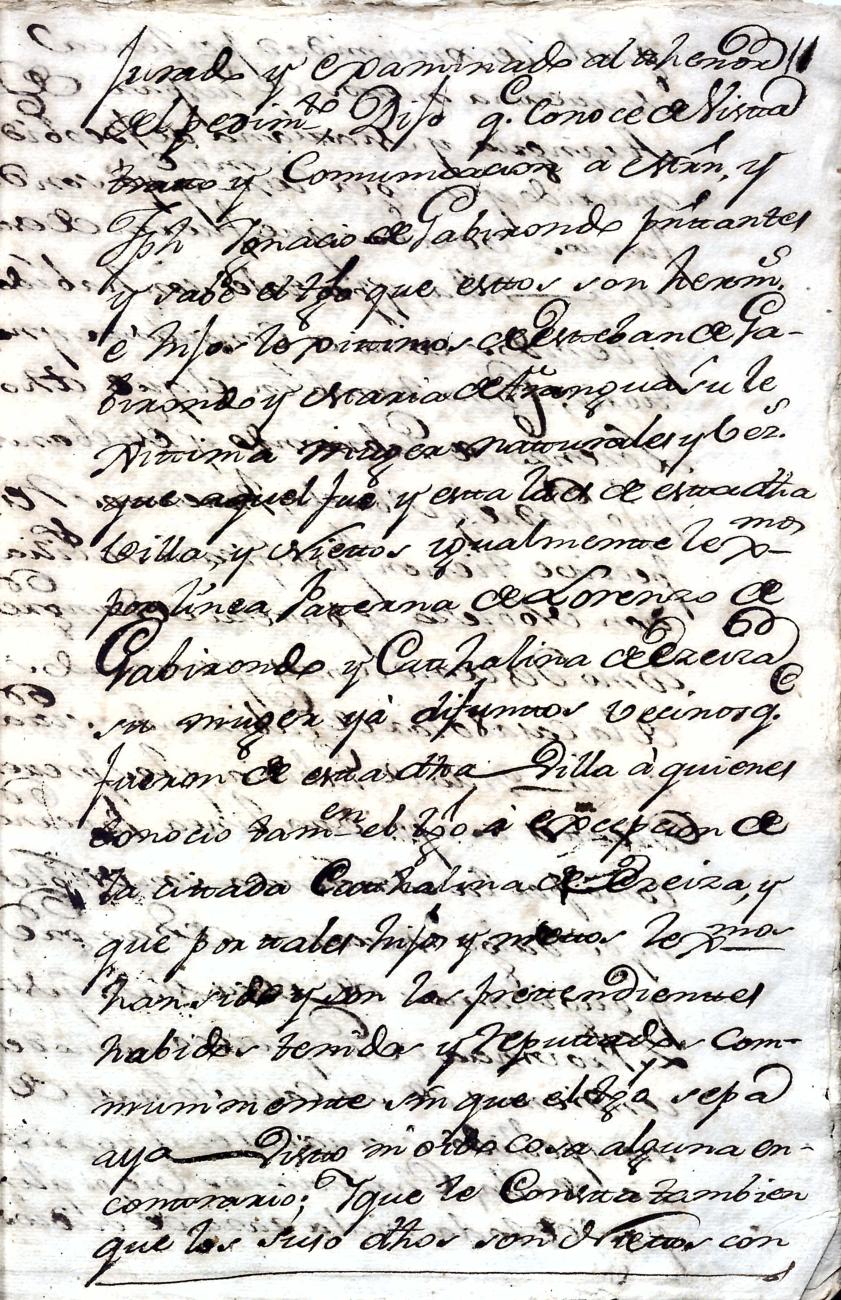 Jurado y examinado al thenor 11
del pedimto. Dijo qe. conoce de Vista
tratto y Comunicacion a Mrn, y
Jph Ygnacio de Gabirondo prêttantes
y sabe el tgo que esttos son hermos.
é hijos lexittimos de Esteban de Ga-
birondo y Maria de Arangua su le
xittima muger natturales y vezos.
que aquel fue y esta la es de esta dha
Villa, y Niettos igualmentte lexmos
por línea Paterna de Lorenzo de
Gabirondo y Cathalina de Ezeiza
su muger yá difunttos vecinos qe.
fueron de esta dha Villa á quienes
conocio tamen el tgo á excepcion de
la cittada Cathalina de Ezeiza, y
que por tales hijos y niettos lexmos
han sido y son los prettendienttes
habidos tenidos y reputtados com-
munmentte sin que el tgo sepa
aya visto ni oido cosa alguna en-
contrario; Y que le Constta tambien
que los suso dhos son Niettos con